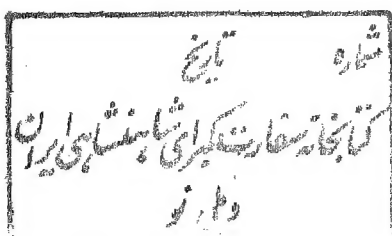 شماره تاریخ
کتابخانه سفارت کبرای شاهنشاهی ایران
دهلی نو